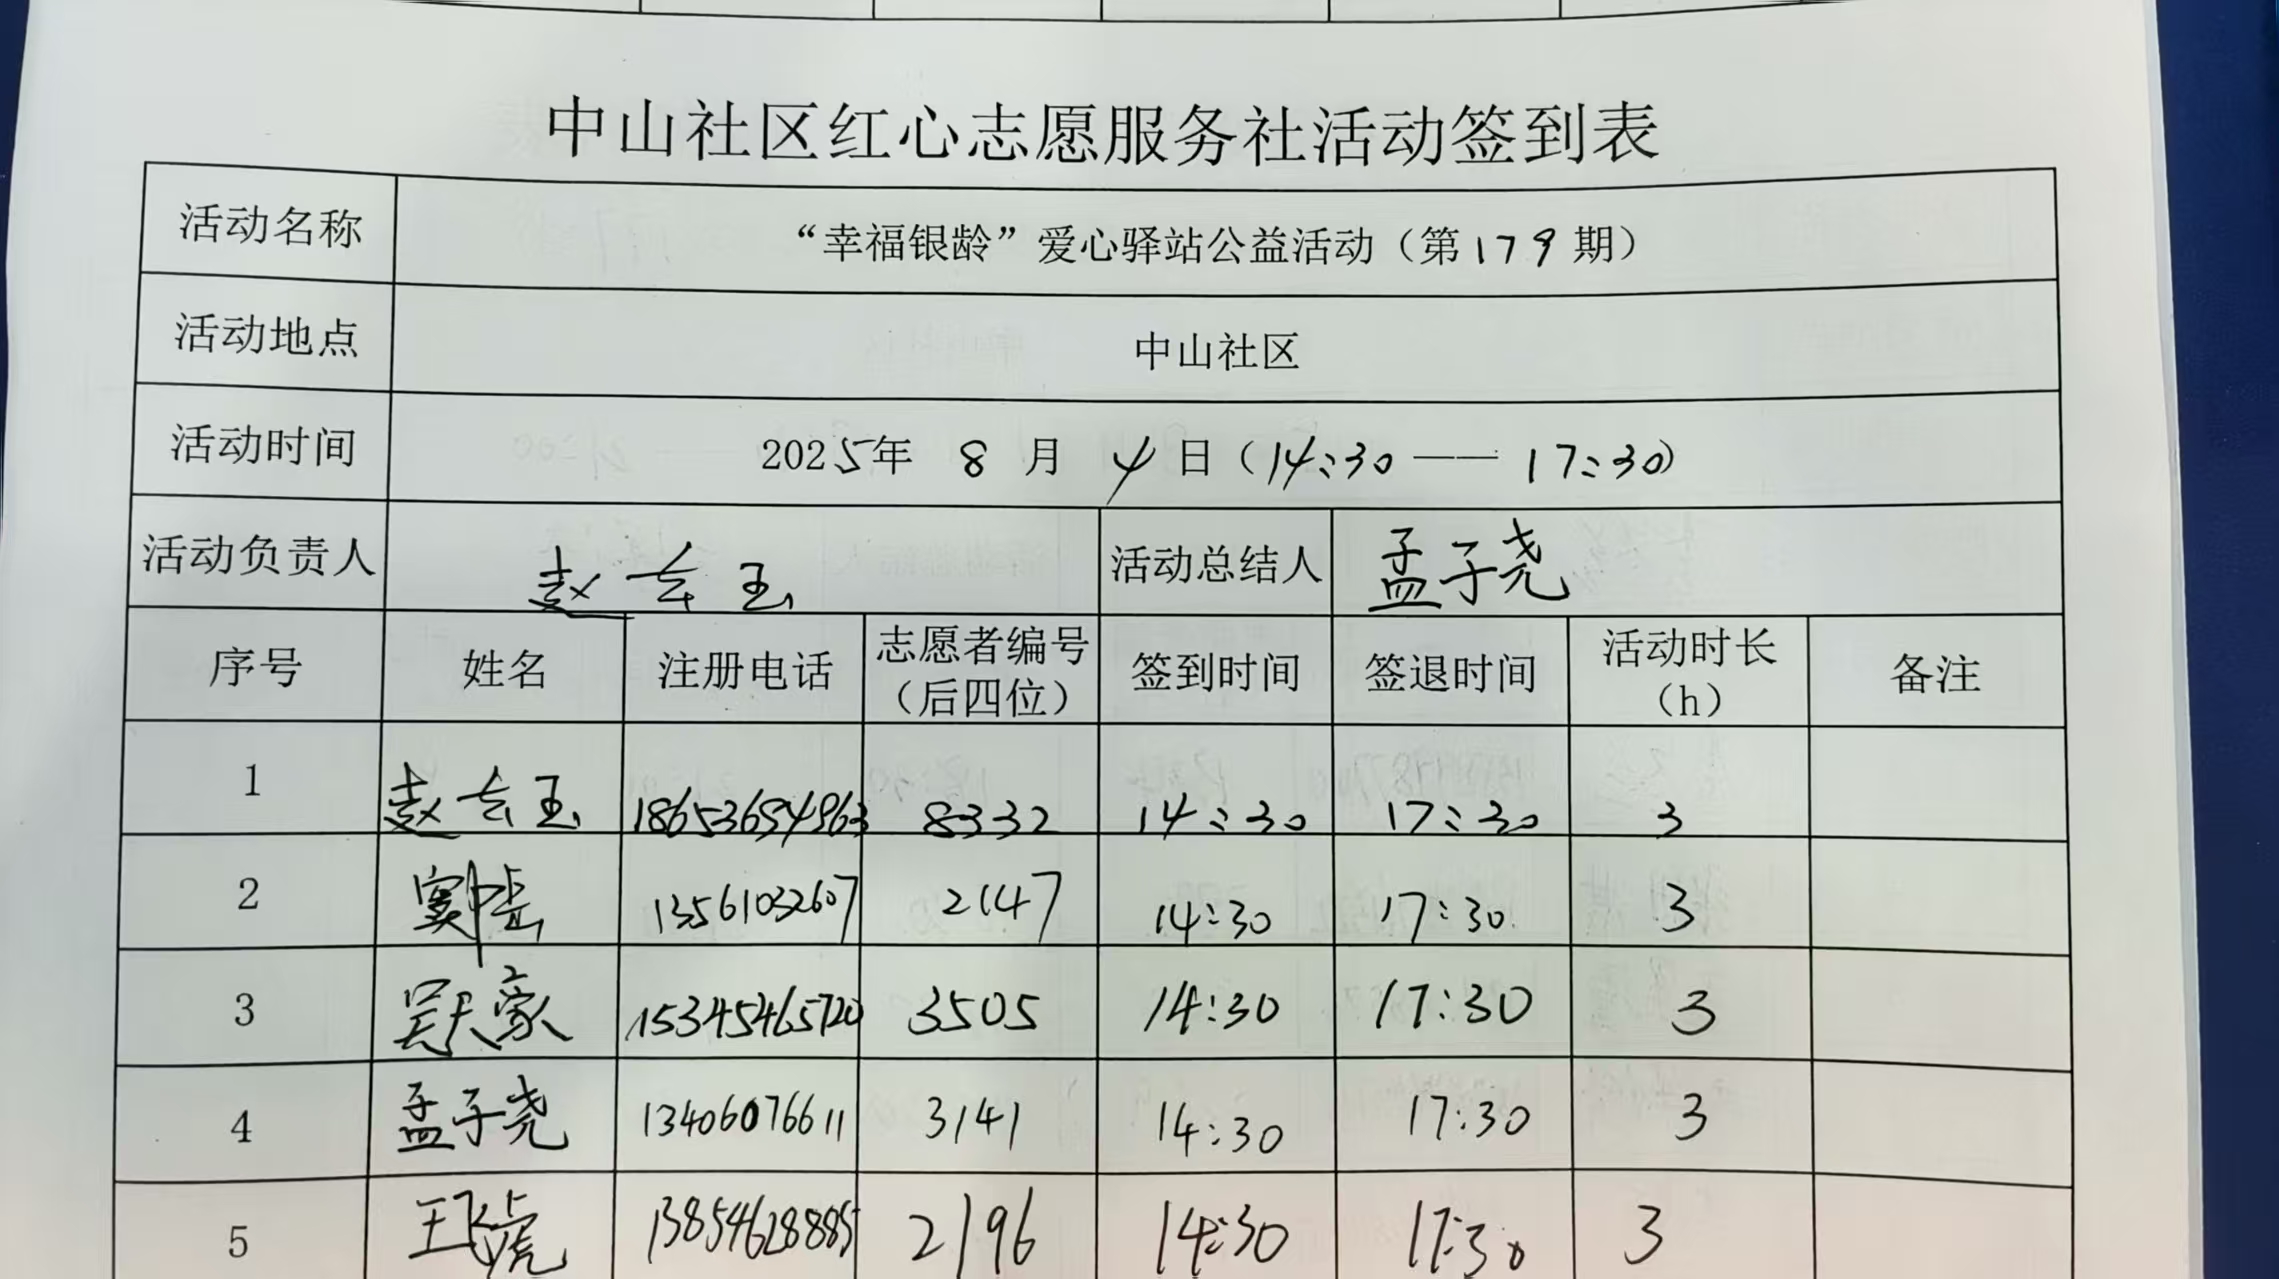 中山社区红心志愿服务社活动签到表
活动名称 “幸福银龄”爱心驿站公益活动（第179期）
活动地点 中山社区
活动时间 2025年 8 月 4 日（14:30 —— 17:30）
活动负责人 赵云玉 活动总结人 孟子尧
序号 姓名 注册电话 志愿者编号（后四位） 签到时间 签退时间 活动时长（h） 备注
1 赵云玉 18653654963 8332 14:30 17:30 3
2 13561032607 2147 14:30 17:30 3
3 吴天豪 15345465720 3505 14:30 17:30 3
4 孟子尧 13406076611 3141 14:30 17:30 3
5 王飞虎 13854628885 2196 14:30 17:30 3